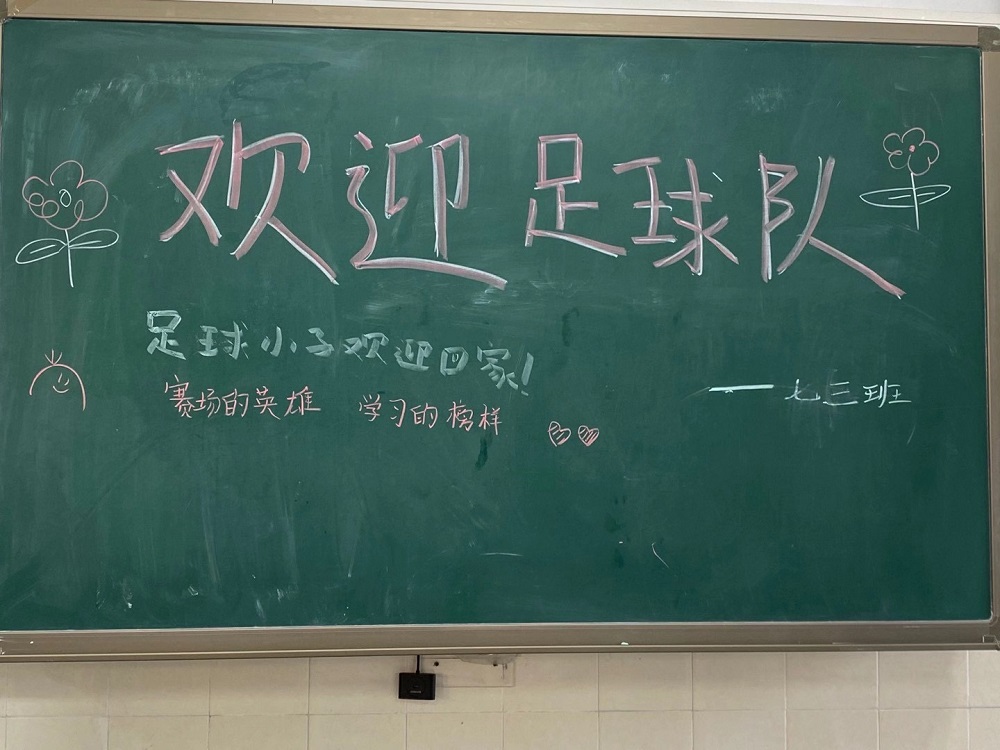 欢迎足球队
足球小子欢迎回家!
赛场的英雄 学习的榜样
——七三班